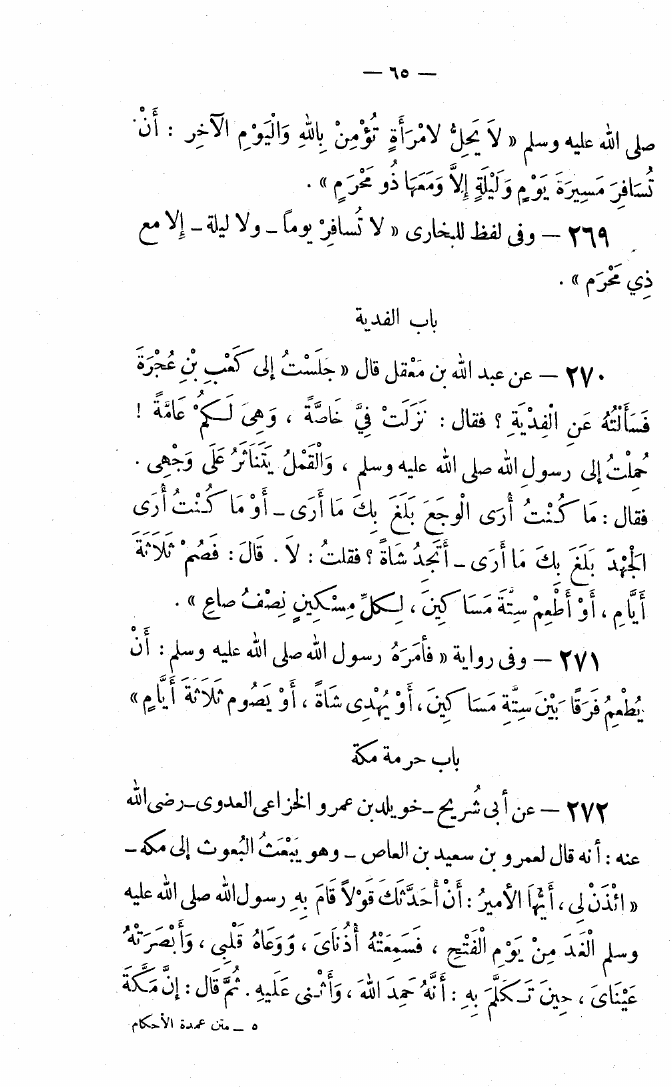 — ٦٥ —
صلى الله عليه وسلم « لاَ يَحِلُّ لامْرَأَةٍ تُؤْمِنْ بِاللهِ وَالْيَوْمِ الآخِرِ : أَنْ
تُسَافِرَ مَسِيرَةَ يَوْمٍ وَلَيْلَةٍ إِلاَّ وَمَعَهَا ذُو مَحْرَمٍ » .
٢٦٩ — وفى لفظ للبخارى « لا تُسافِرْ يوماً ـ ولا ليلة ـ إلا مع
ذِي مَحْرَم » .
باب الفدية
٢٧٠ — عن عبد الله بن مَعْقل قال « جلَسْتُ إلى كَعْبِ بْنِ عُجْرَةَ
فَسَأَلْتُهُ عَنِ الْفِدْيَةِ ؟ فقال : نَزَلَتْ فِيَّ خَاصَّةً ، وَهِىَ لَكمُ عَامَّةً !
حُمِلْتُ إلى رسولِ الله صلى الله عليه وسلم ، وَالْقَمْلُ يَتَنَاثَرُ عَلَى وَجْهِى .
فقال : مَا كُنْتُ أُرَى الْوجَعَ بَلَغَ بِكَ مَا أَرَى ـ أَوْ مَا كُنْتُ أُرَى
الجَهْدَ بَلَغَ بِكَ مَا أَرَى ـ أَتَجِدُ شَاةً ؟ فقلتُ : لاَ . قَالَ : فَصُمْ ثَلاَثَةَ
أَيَّامٍ ، أَوْ أَطْعِمْ سِتَّةَ مَسَاكِينَ ، لِكلِّ مِسْكِينٍ نِصْفُ صاعٍ » .
٢٧١ — وفى رواية « فأمَرَهُ رسول الله صلى الله عليه وسلم : أَنْ
يُطْعِمُ فَرَقًا بَيْنَ سِتَّةِ مَسَاكِينَ ، أَوْ يُهْدِى شَاةً ، أَوْ يَصُومَ ثَلاَثَةَ أَيَّامٍ »
باب حرمة مكة
٢٧٢ — عن أبى شُريح ـ خويلد بن عمرو الخزاعى العدوى ـ رضى الله
عنه : أنه قال لعمرو بن سعيد بن العاص ـ وهو يَبْعَثُ البُعوث إلى مكة ـ
« ائْذَنْ لِى ، أَيُّهَا الأميرُ : أَنْ أُحَدِّثَكَ قَوْلاً قَامَ بِهِ رسول الله صلى الله عليه
وسلم الْغَدَ مِنْ يَوْمِ الْفَتْحِ ، فَسَمِعَتْهُ أُذُنَاىَ ، وَوَعَاهُ قَلْبِى ، وَأَبْصَرَتْهُ
عَيْنَاىَ ، حِينَ تَكَلَّمَ بِهِ : أَنَّهُ حَمِدَ اللهَ ، وَأَثْنى عَلَيهِ . ثُمَّ قَال : إنَّ مَكَّةَ
٥ ـ متن عمدة الأحكام